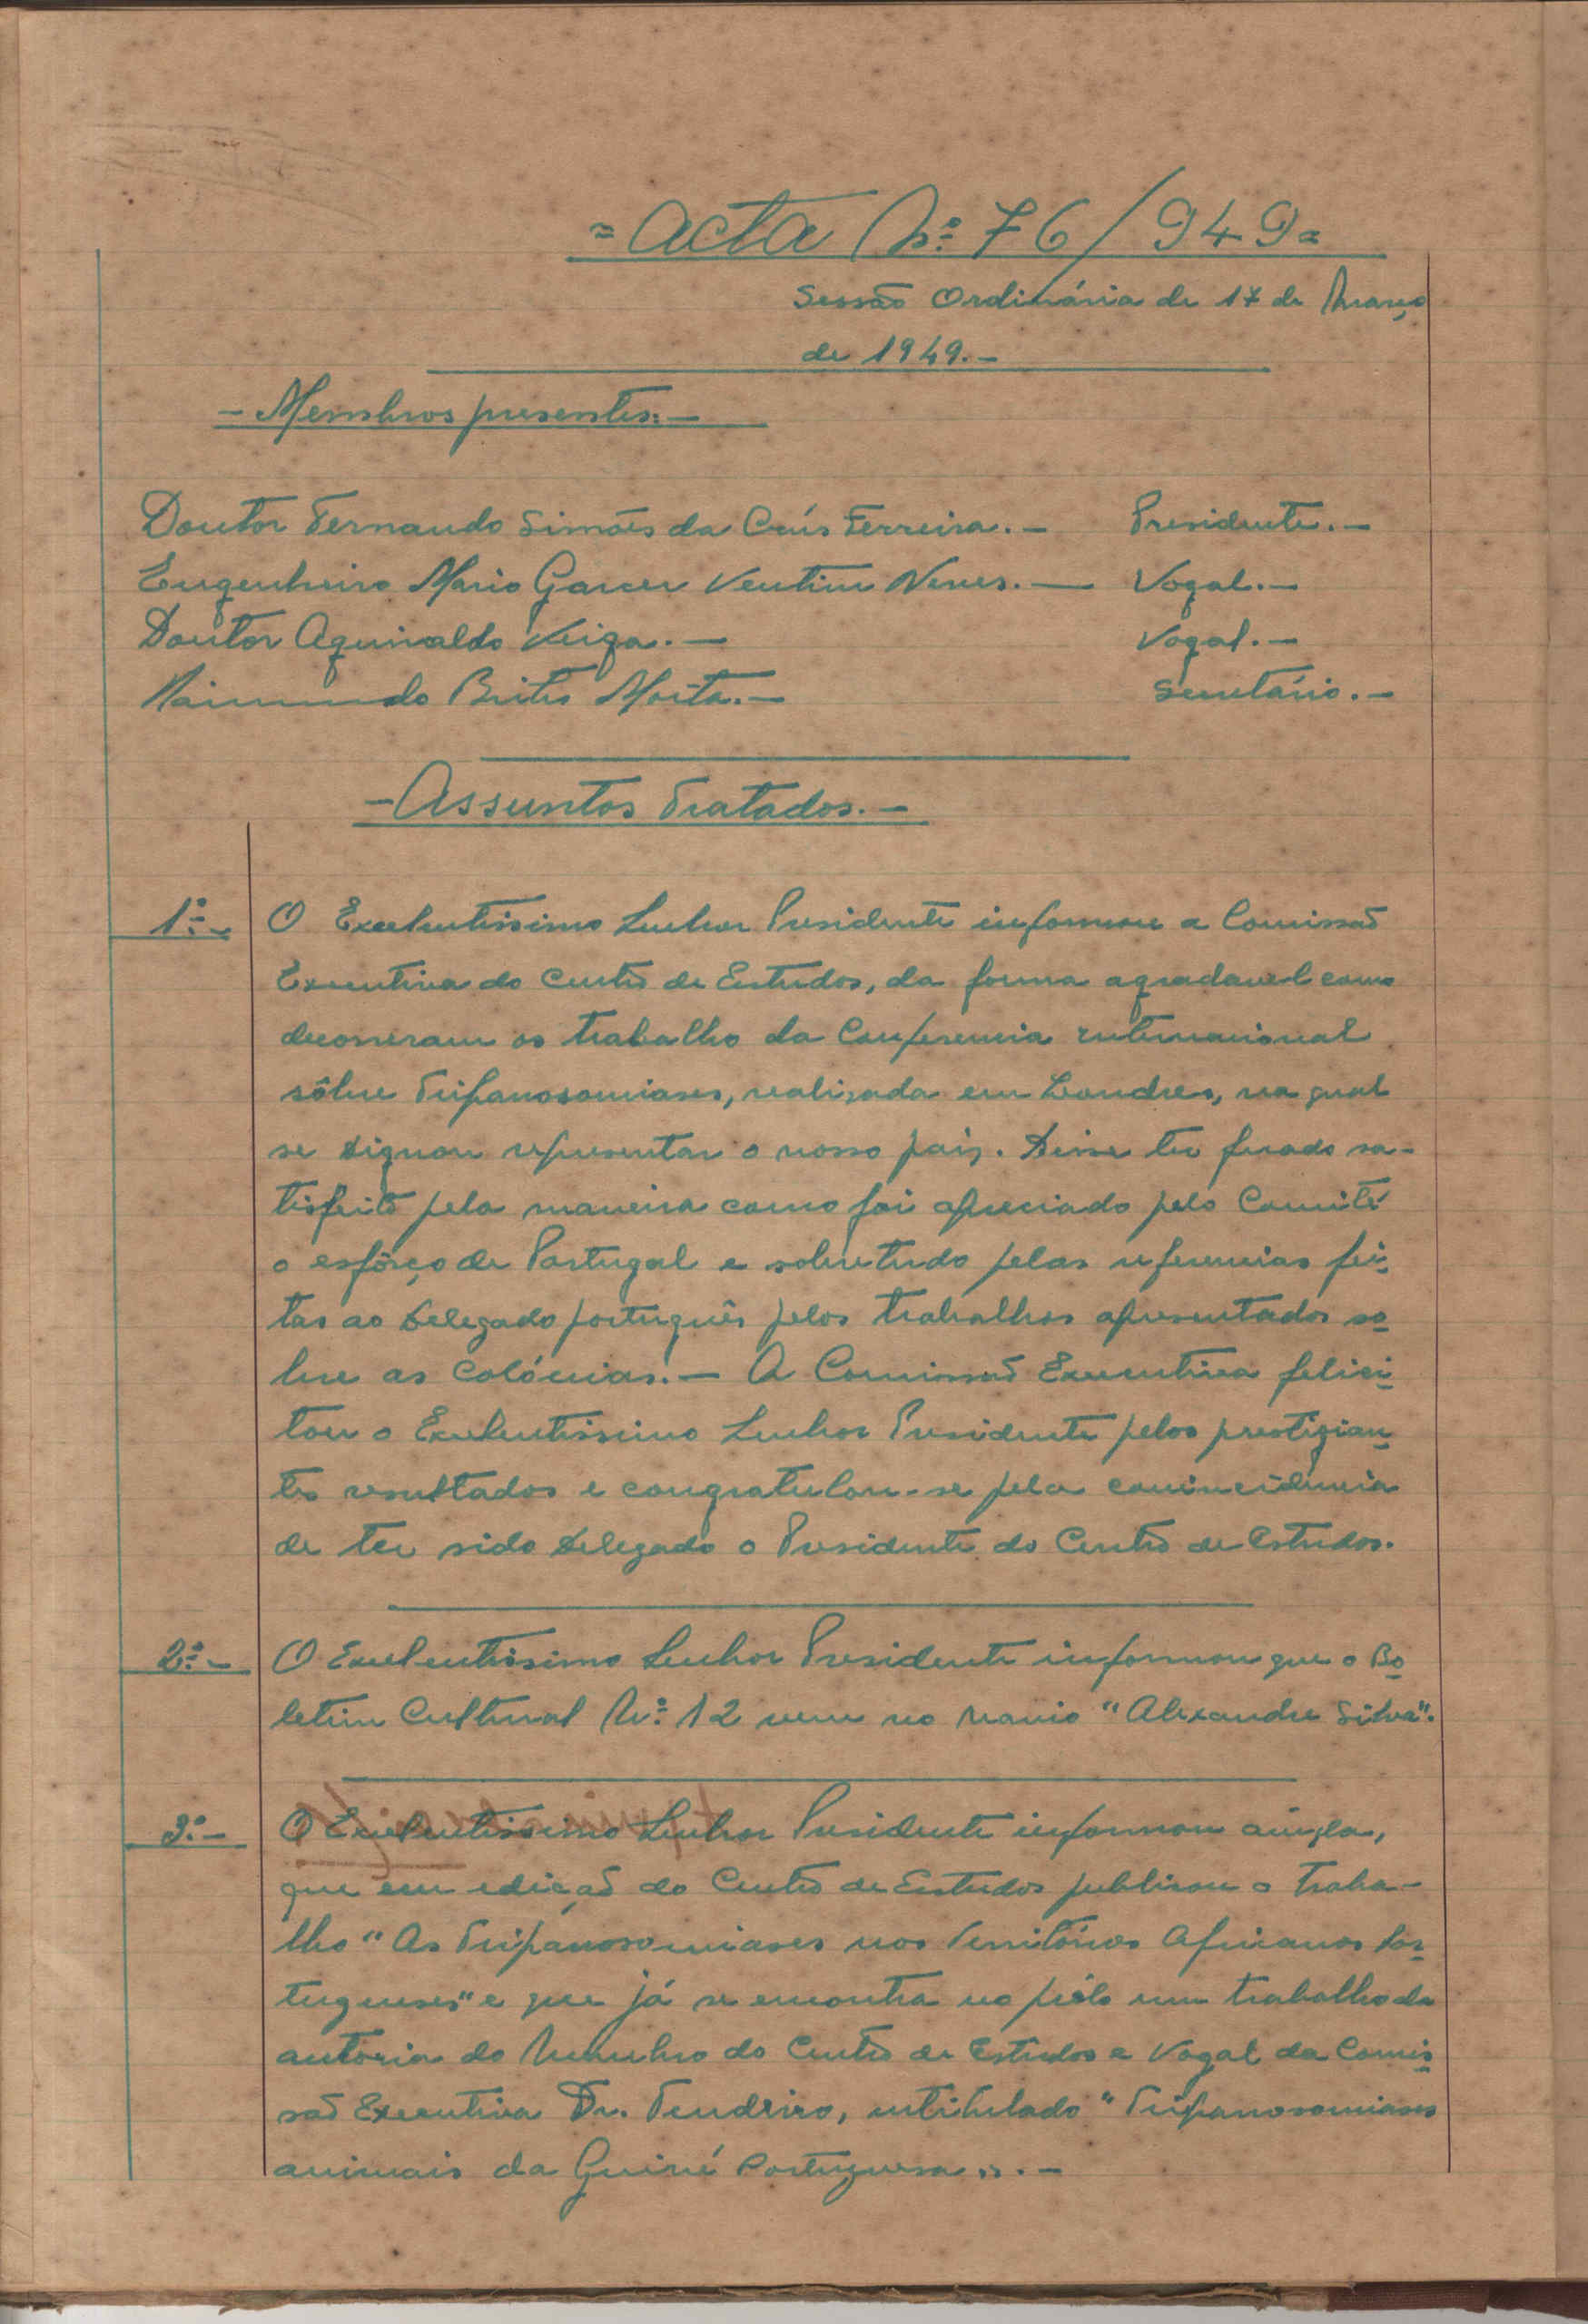 = Acta Nº 76/949 =
Sessão Ordinária de 17 de Março
de 1949.-
- Membros presentes:-
Doutor Fernando Simões da Cruz Ferreira.- Presidente.-
Engenheiro Mario Garcez Ventim Neves.- Vogal.-
Doutor Aguinaldo Veiga.- Vogal.-
Raimundo Brites Moita.- Secretário.-
- Assuntos Tratados.-
1º.- O Excelentissimo Senhor Presidente informou a Comissaõ
Executiva do Centro de Estudos, da forma agradavel como
decorreram os trabalho da Conferencia internacional
sôbre Tripanosomiases, realizada em Londres, na qual
se dignou representar o nosso paiz. Disse ter ficado sa-
tisfeito pela maneira como foi apreciado pelo Comité
o esfôrço de Portugal e sobretudo pelas referencias fei-
tas ao Delegado português pelos trabalhos apresentados so-
bre as Colónias.- A Comissaõ Executiva felici-
tou o Excelentissimo Senhor Presidente pelos prestigian-
tes resultados e congratulou-se pela
de ter sido Delegado o Presidente do Centro de Estudos.
2º.- O Excelentissimo Senhor Presidente informou que o Bo-
letim Cultural Nº 12 vem no navio "Alexandre Silva".
3º.- O Excelentissimo Senhor Presidente informou ainda,
que em ediçaõ do Centro de Estudos publicou o traba-
lho "As Tripanosomiases nos Territórios Africanos Por-
tugueses" e que já se encontra no prélo um trabalho da
autoria do Membro do Centro de Estudos e Vogal da Comis-
saõ Executiva Dr. Tendeiro, intitulado "Tripanosomiases
animais da Guiné Portuguesa".-